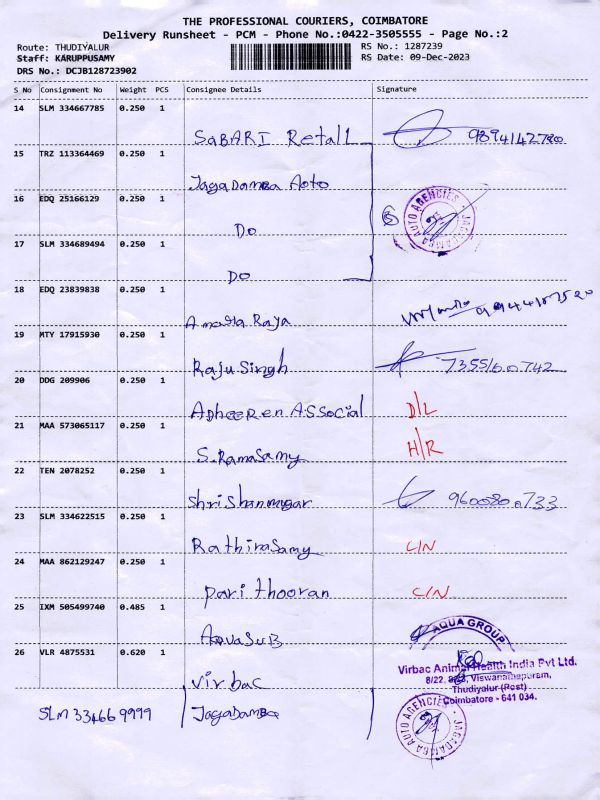 THE PROFESSIONAL COURIERS, COIMBATORE
Delivery Runsheet - PCM - Phone No.:0422-3505555 - Page No.:2
Route: THUDIYALUR RS No.: 1287239
Staff: KARUPPUSAMY RS Date: 09-Dec-2023
DRS No.: DCJB128723902
S No Consignment No Weight PCS Consignee Details Signature
14 SLM 334667785 0.250 1
SABARI Retail 9894142780
15 TRZ 113364469 0.250 1
JagaDamba Aoto
16 EDQ 25166129 0.250 1
Do
JAGADAMBA AUTO AGENCIES
17 SLM 334689494 0.250 1
Do
18 EDQ 23839838 0.250 1
Raya
19 MTY 17915930 0.250 1
Raju Singh
20 DDG 209906 0.250 1
ADheeren ASSocial D/L
21 MAA 573065117 0.250 1
S.Ramasamy H/R
22 TEN 2078252 0.250 1
Shri Shanmugar
23 SLM 334622515 0.250 1
Rathinasamy C/N
24 MAA 862129247 0.250 1
Pari thooran C/N
25 IXM 505499740 0.485 1
AQUASUB AQUA GROUP
26 VLR 4875531 0.620 1
Virbac Animal Health India Pvt Ltd.
8/22, Viswanathapuram,
Thudiyalur (Post)
Coimbatore - 641 034.
Virbac
SLM 334669999 JagaDamba
JAGADAMBA AUTO AGENCIES